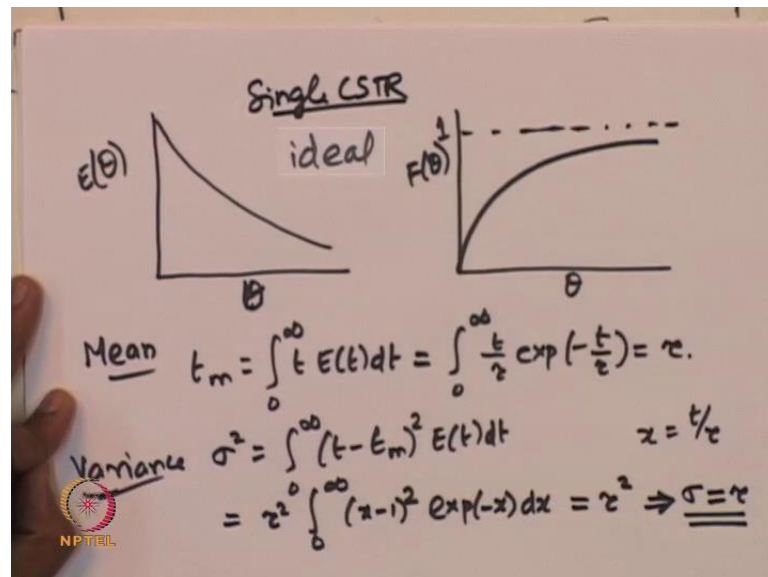 Single CSTR
ideal
E(θ)
θ
1
F(θ)
θ
Mean t_m = ∫₀^∞ t E(t)dt = ∫₀^∞ t/τ exp(-t/τ) = τ.
Variance σ² = ∫₀^∞ (t-t_m)² E(t)dt x = t/τ
= τ² ∫₀^∞ (x-1)² exp(-x)dx = τ² ⇒ σ=τ
NPTEL